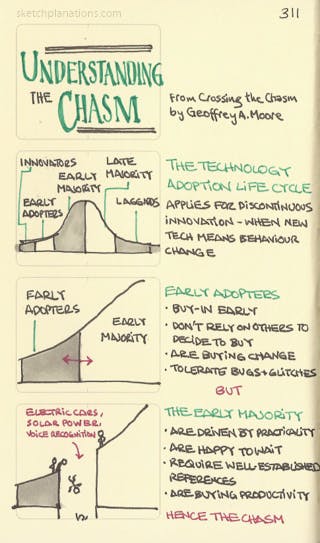 sketchplanations.com
311
UNDERSTANDING
THE CHASM
From Crossing the Chasm
by Geoffrey A. Moore
INNOVATORS
EARLY
ADOPTERS
EARLY
MAJORITY
LATE
MAJORITY
LAGGARDS
THE TECHNOLOGY
ADOPTION LIFE CYCLE
APPLIES FOR DISCONTINUOUS
INNOVATION - WHEN NEW
TECH MEANS BEHAVIOUR
CHANGE
EARLY
ADOPTERS
EARLY
MAJORITY
EARLY ADOPTERS
• BUY-IN EARLY
• DON'T RELY ON OTHERS TO
DECIDE TO BUY
• ARE BUYING CHANGE
• TOLERATE BUGS + GLITCHES
BUT
ELECTRIC CARS,
SOLAR POWER,
VOICE RECOGNITION
THE EARLY MAJORITY
• ARE DRIVEN BY PRACTICALITY
• ARE HAPPY TO WAIT
• REQUIRE WELL ESTABLISHED
REFERENCES
• ARE BUYING PRODUCTIVITY
HENCE THE CHASM